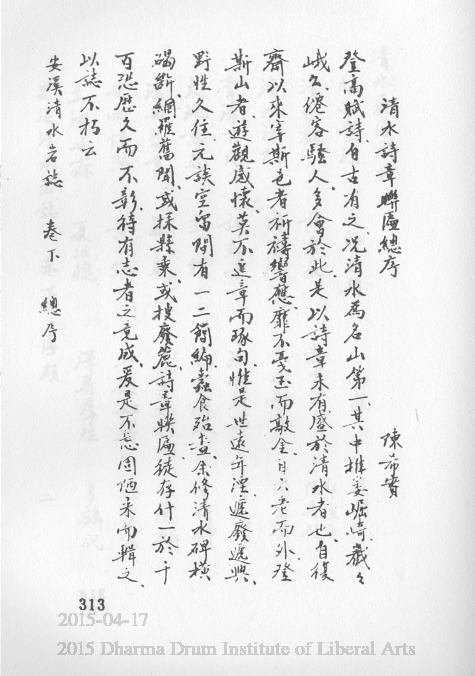 清水詩章聯匾總序
陳希實
登高賦詩自古有之况清水為名山第一其中摧崣崛崎巖々
峨々僊客騷人多會於此是以詩章未有盛於清水者也自復
齋以來宰斯邑者祈禱響應靡不戞玉而敲金自六老而外登
斯山者遊觀感懷莫不追章而琢句惟是世遠年湮遞廢遞興
野性久住元談空留間有一二簡編蠹食殆盡余修清水碑模
碣斷網羅舊聞或採縣乘或搜廢簏詩章聯匾徒存什一於千
百恐歷久而不彰待有志者之竟成爰是不忘固陋采而輯之
以誌不朽云
安溪清水岩誌 卷下 總序
313
2015-04-17
2015 Dharma Drum Institute of Liberal Arts